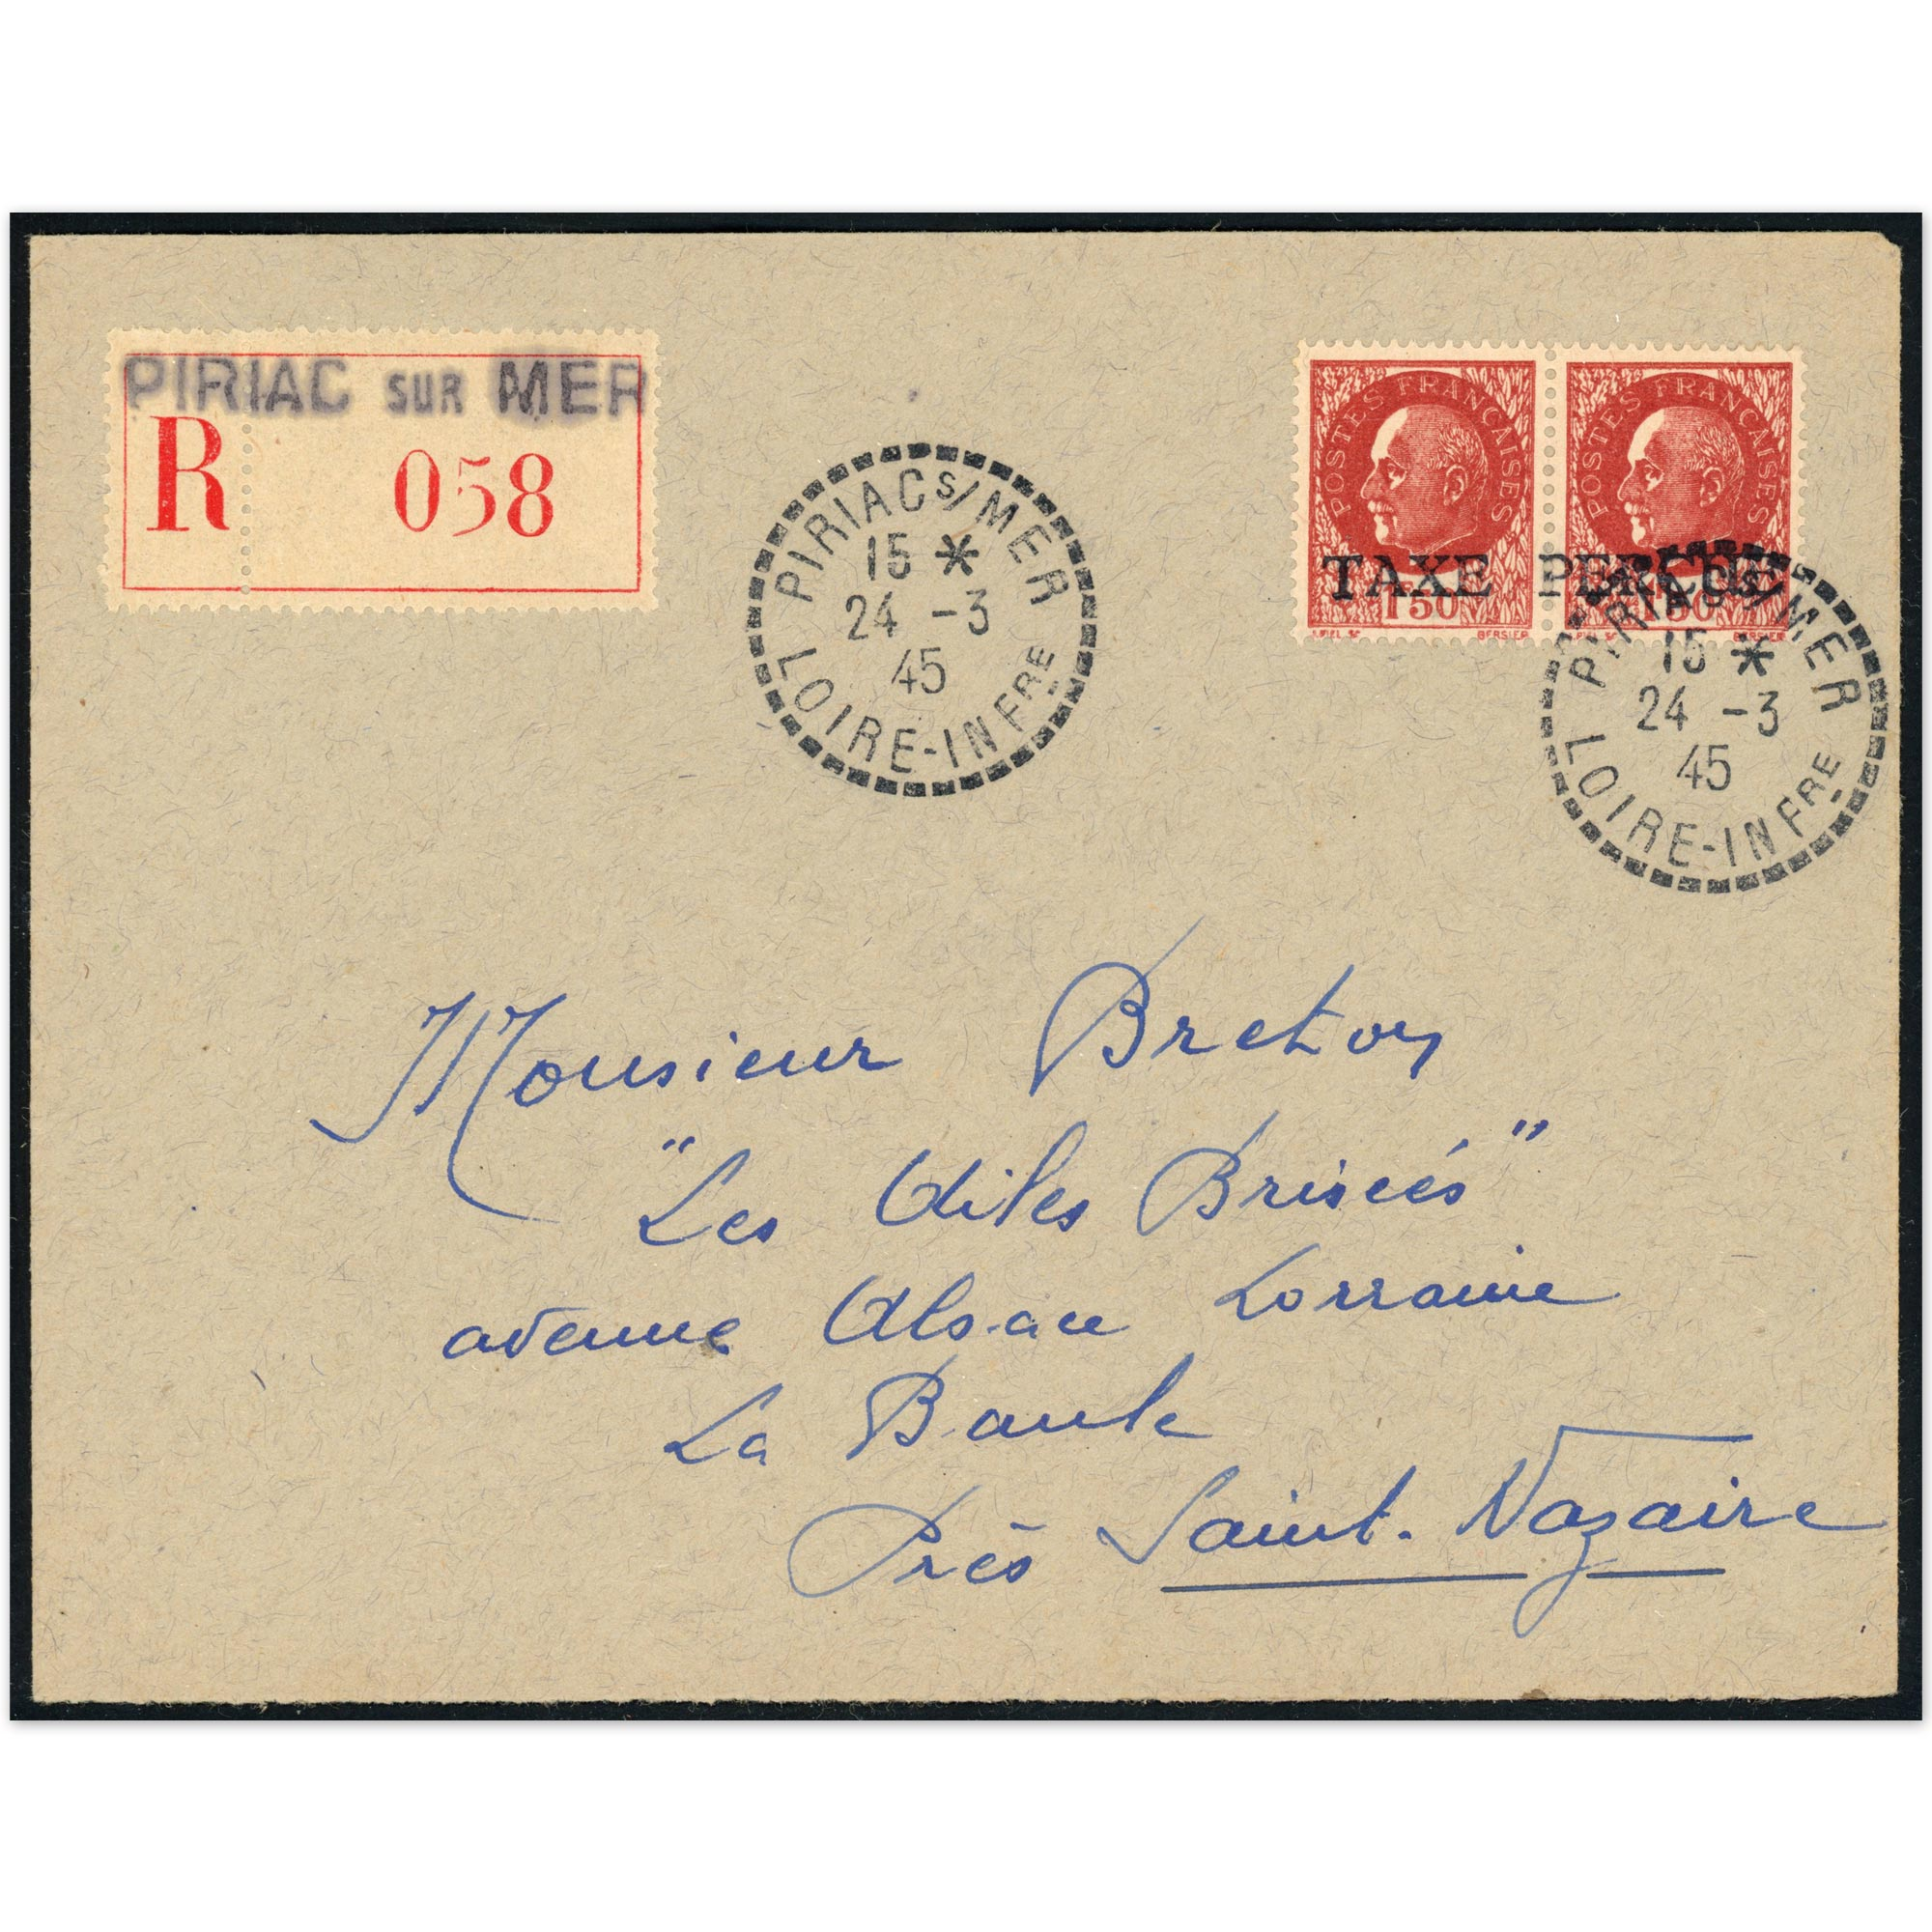 PIRIAC SUR MER
R 058
PIRIAC S/MER
15 *
24 -3
45
LOIRE-INFRE
POSTES FRANÇAISES
POSTES FRANÇAISES
TAXE PERÇUE
1F50
1F50
BERSIER
BERSIER
PIRIAC S/MER
15 *
24 -3
45
LOIRE-INFRE
Monsieur Breton
"Les Ailes Brisées"
avenue Alsace Lorraine
La Baule
Près Saint-Nazaire